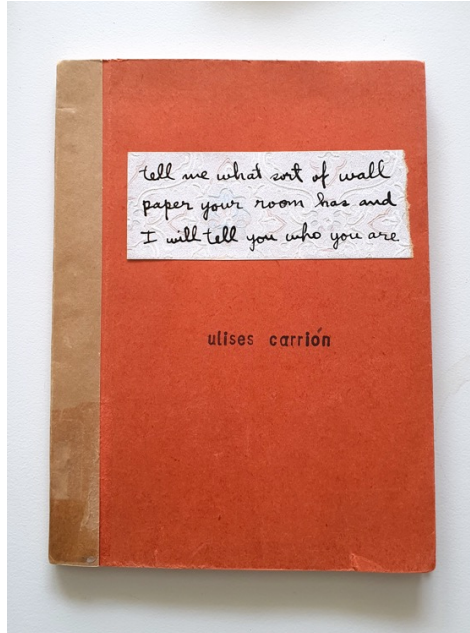 tell me what sort of wall
paper your room has and
I will tell you who you are
ulises carrión